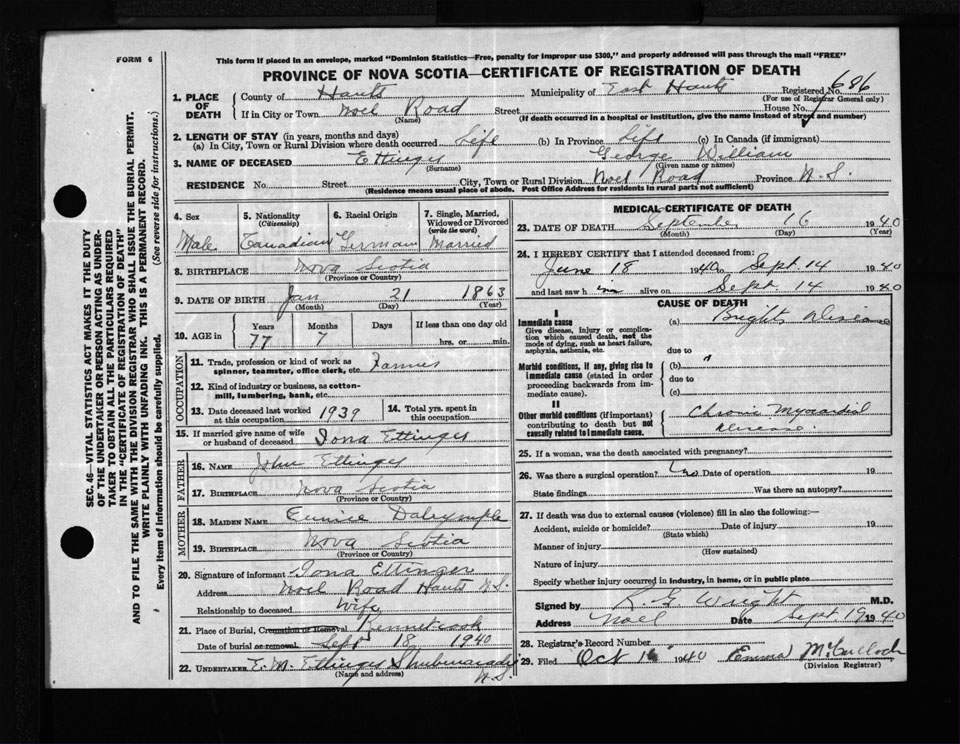 FORM 6
This form if placed in an envelope, marked "Dominion Statistics—Free, penalty for improper use $300," and properly addressed will pass through the mail "FREE"
PROVINCE OF NOVA SCOTIA—CERTIFICATE OF REGISTRATION OF DEATH
1. PLACE OF DEATH
County of Hants Municipality of East Hants Registered No. 686
(For use of Registrar General only)
If in City or Town Noel Road Street House No.
(Name) (If death occurred in a hospital or institution, give the name instead of street and number)
2. LENGTH OF STAY (in years, months and days)
(a) In City, Town or Rural Division where death occurred Life (b) In Province Life (c) In Canada (if immigrant)
3. NAME OF DECEASED Ettinger George William
(Surname) (Given name or names)
RESIDENCE No. Street City, Town or Rural Division Noel Road Province N.S.
(Residence means usual place of abode. Post Office Address for residents in rural parts not sufficient)
SEC. 46—VITAL STATISTICS ACT MAKES IT THE DUTY
OF THE UNDERTAKER OR PERSON ACTING AS UNDER-
TAKER TO OBTAIN ALL THE PARTICULARS REQUIRED
IN THE "CERTIFICATE OF REGISTRATION OF DEATH"
AND TO FILE THE SAME WITH THE DIVISION REGISTRAR WHO SHALL ISSUE THE BURIAL PERMIT.
WRITE PLAINLY WITH UNFADING INK. THIS IS A PERMANENT RECORD.
Every item of information should be carefully supplied. (See reverse side for instructions.)
4. Sex
Male
5. Nationality
(Citizenship)
Canadian
6. Racial Origin
German
7. Single, Married,
Widowed or Divorced
(write the word)
Married
8. BIRTHPLACE Nova Scotia
(Province or Country)
9. DATE OF BIRTH Jan 21 1863
(Month) (Day) (Year)
10. AGE in Years Months Days If less than one day old
77 7 hrs. or min.
OCCUPATION
11. Trade, profession or kind of work as
spinner, teamster, office clerk, etc. Farmer
12. Kind of industry or business, as cotton-
mill, lumbering, bank, etc.
13. Date deceased last worked
at this occupation 1939
14. Total yrs. spent in
this occupation
15. If married give name of wife
or husband of deceased Iona Ettinger
FATHER
16. NAME John Ettinger
17. BIRTHPLACE Nova Scotia
(Province or Country)
MOTHER
18. MAIDEN NAME Eunice Dalrymple
19. BIRTHPLACE Nova Scotia
(Province or Country)
20. Signature of informant Iona Ettinger
Address Noel Road Hants N.S.
Relationship to deceased Wife
21. Place of Burial, Cremation or Removal Kennetcook
Date of burial or removal Sept 18 1940
22. UNDERTAKER E. M. Ettinger Shubenacadie
(Name and address) N.S.
MEDICAL CERTIFICATE OF DEATH
23. DATE OF DEATH September 16 1940
(Month) (Day) (Year)
24. I HEREBY CERTIFY that I attended deceased from:
June 18 1940 to Sept. 14 1940
and last saw him alive on Sept 14 1940
CAUSE OF DEATH
I
Immediate cause
Give disease, injury or complica-
tion which caused death, not the
mode of dying, such as heart failure,
asphyxia, asthenia, etc.
(a) Brights Disease
due to
Morbid conditions, if any, giving rise to
immediate cause (stated in order
proceeding backwards from im-
mediate cause).
(b)
due to
(c)
II
Other morbid conditions (if important)
contributing to death but not
causally related to immediate cause.
Chronic Myocardial
disease.
25. If a woman, was the death associated with pregnancy?
26. Was there a surgical operation? no Date of operation 19
State findings Was there an autopsy?
27. If death was due to external causes (violence) fill in also the following:—
Accident, suicide or homicide? Date of injury 19
(State which)
Manner of injury
(How sustained)
Nature of injury
Specify whether injury occurred in industry, in home, or in public place
Signed by R G Wright M.D.
Address Noel Date Sept. 19 1940
28. Registrar's Record Number
29. Filed Oct 1940 Emma McCulloch
(Division Registrar)